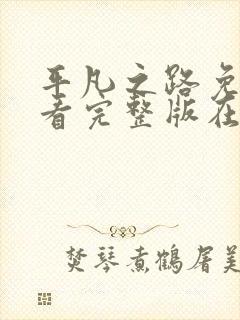 平凡之路免
看完整版在
焚琴煮鹤屠美